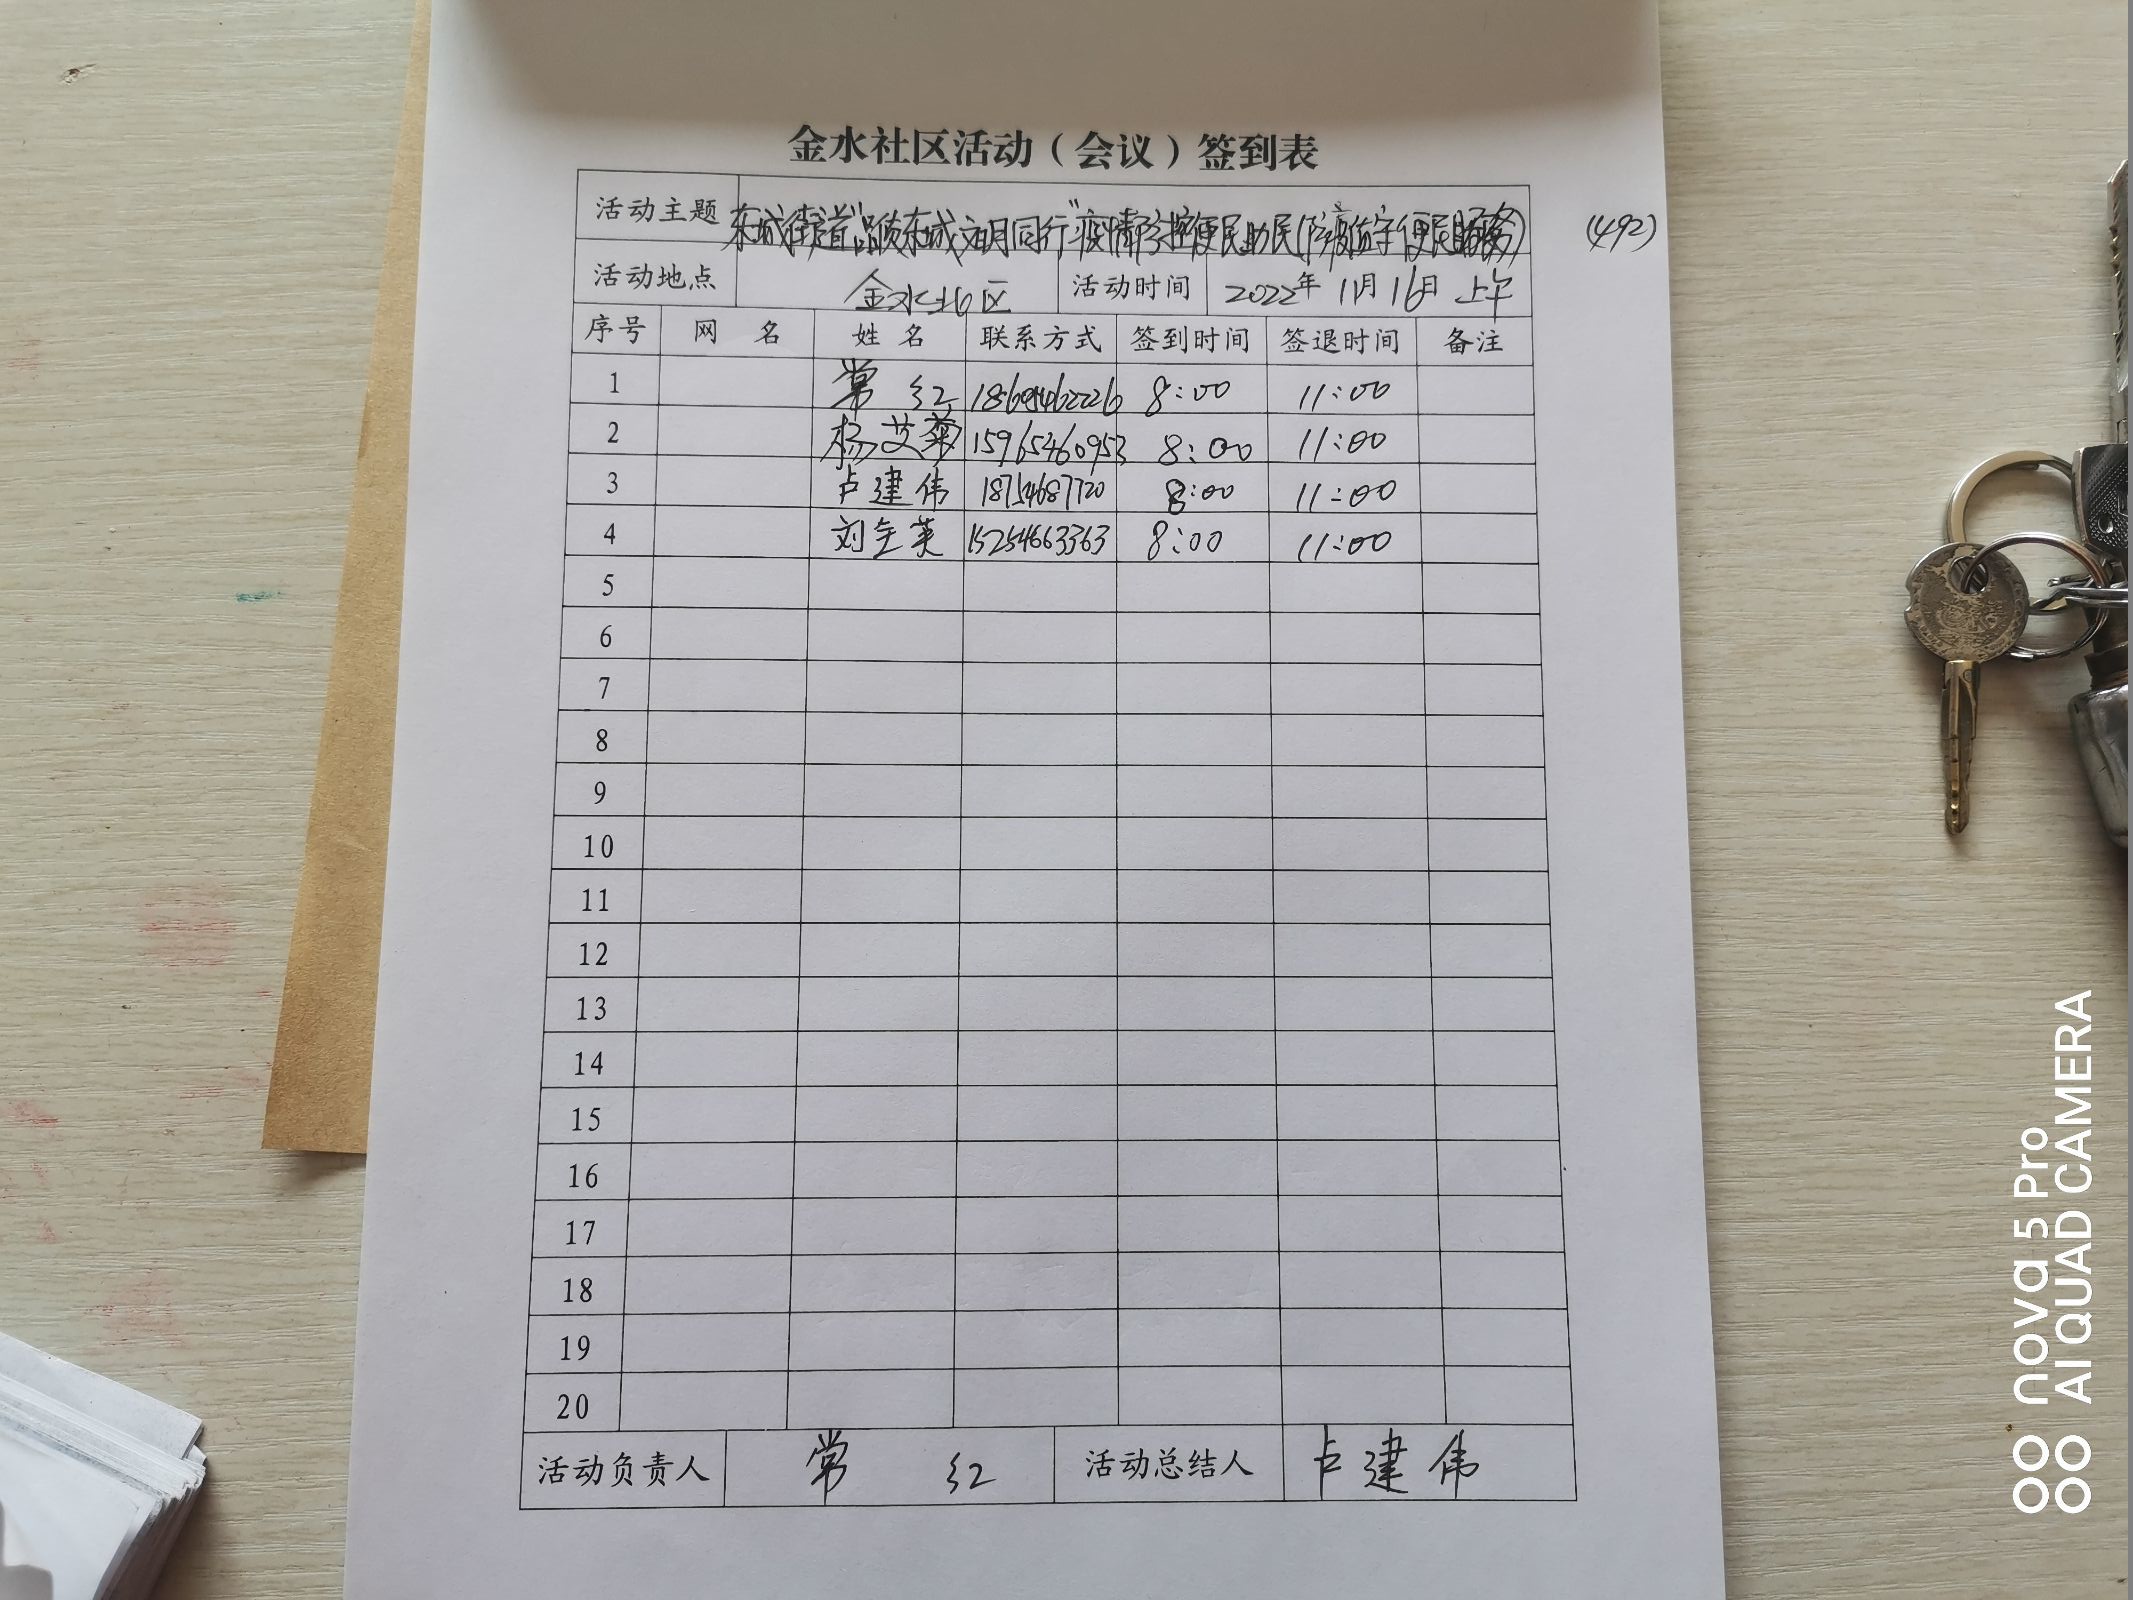 金水社区活动（会议）签到表
活动主题 东城街道"品质东城文明同行"疫情防控便民助民(防疫值守便民服务) (492)
活动地点 金水北区 活动时间 2022年 11月 16日 上午
序号 网 名 姓 名 联系方式 签到时间 签退时间 备注
1 常 红 8:00 11:00
2 杨艾菊 15965460953 8:00 11:00
3 卢建伟 18754687720 8:00 11:00
4 刘金英 15254663363 8:00 11:00
5
6
7
8
9
10
11
12
13
14
15
16
17
18
19
20
活动负责人 常 红 活动总结人 卢建伟
nova 5 Pro
AI QUAD CAMERA